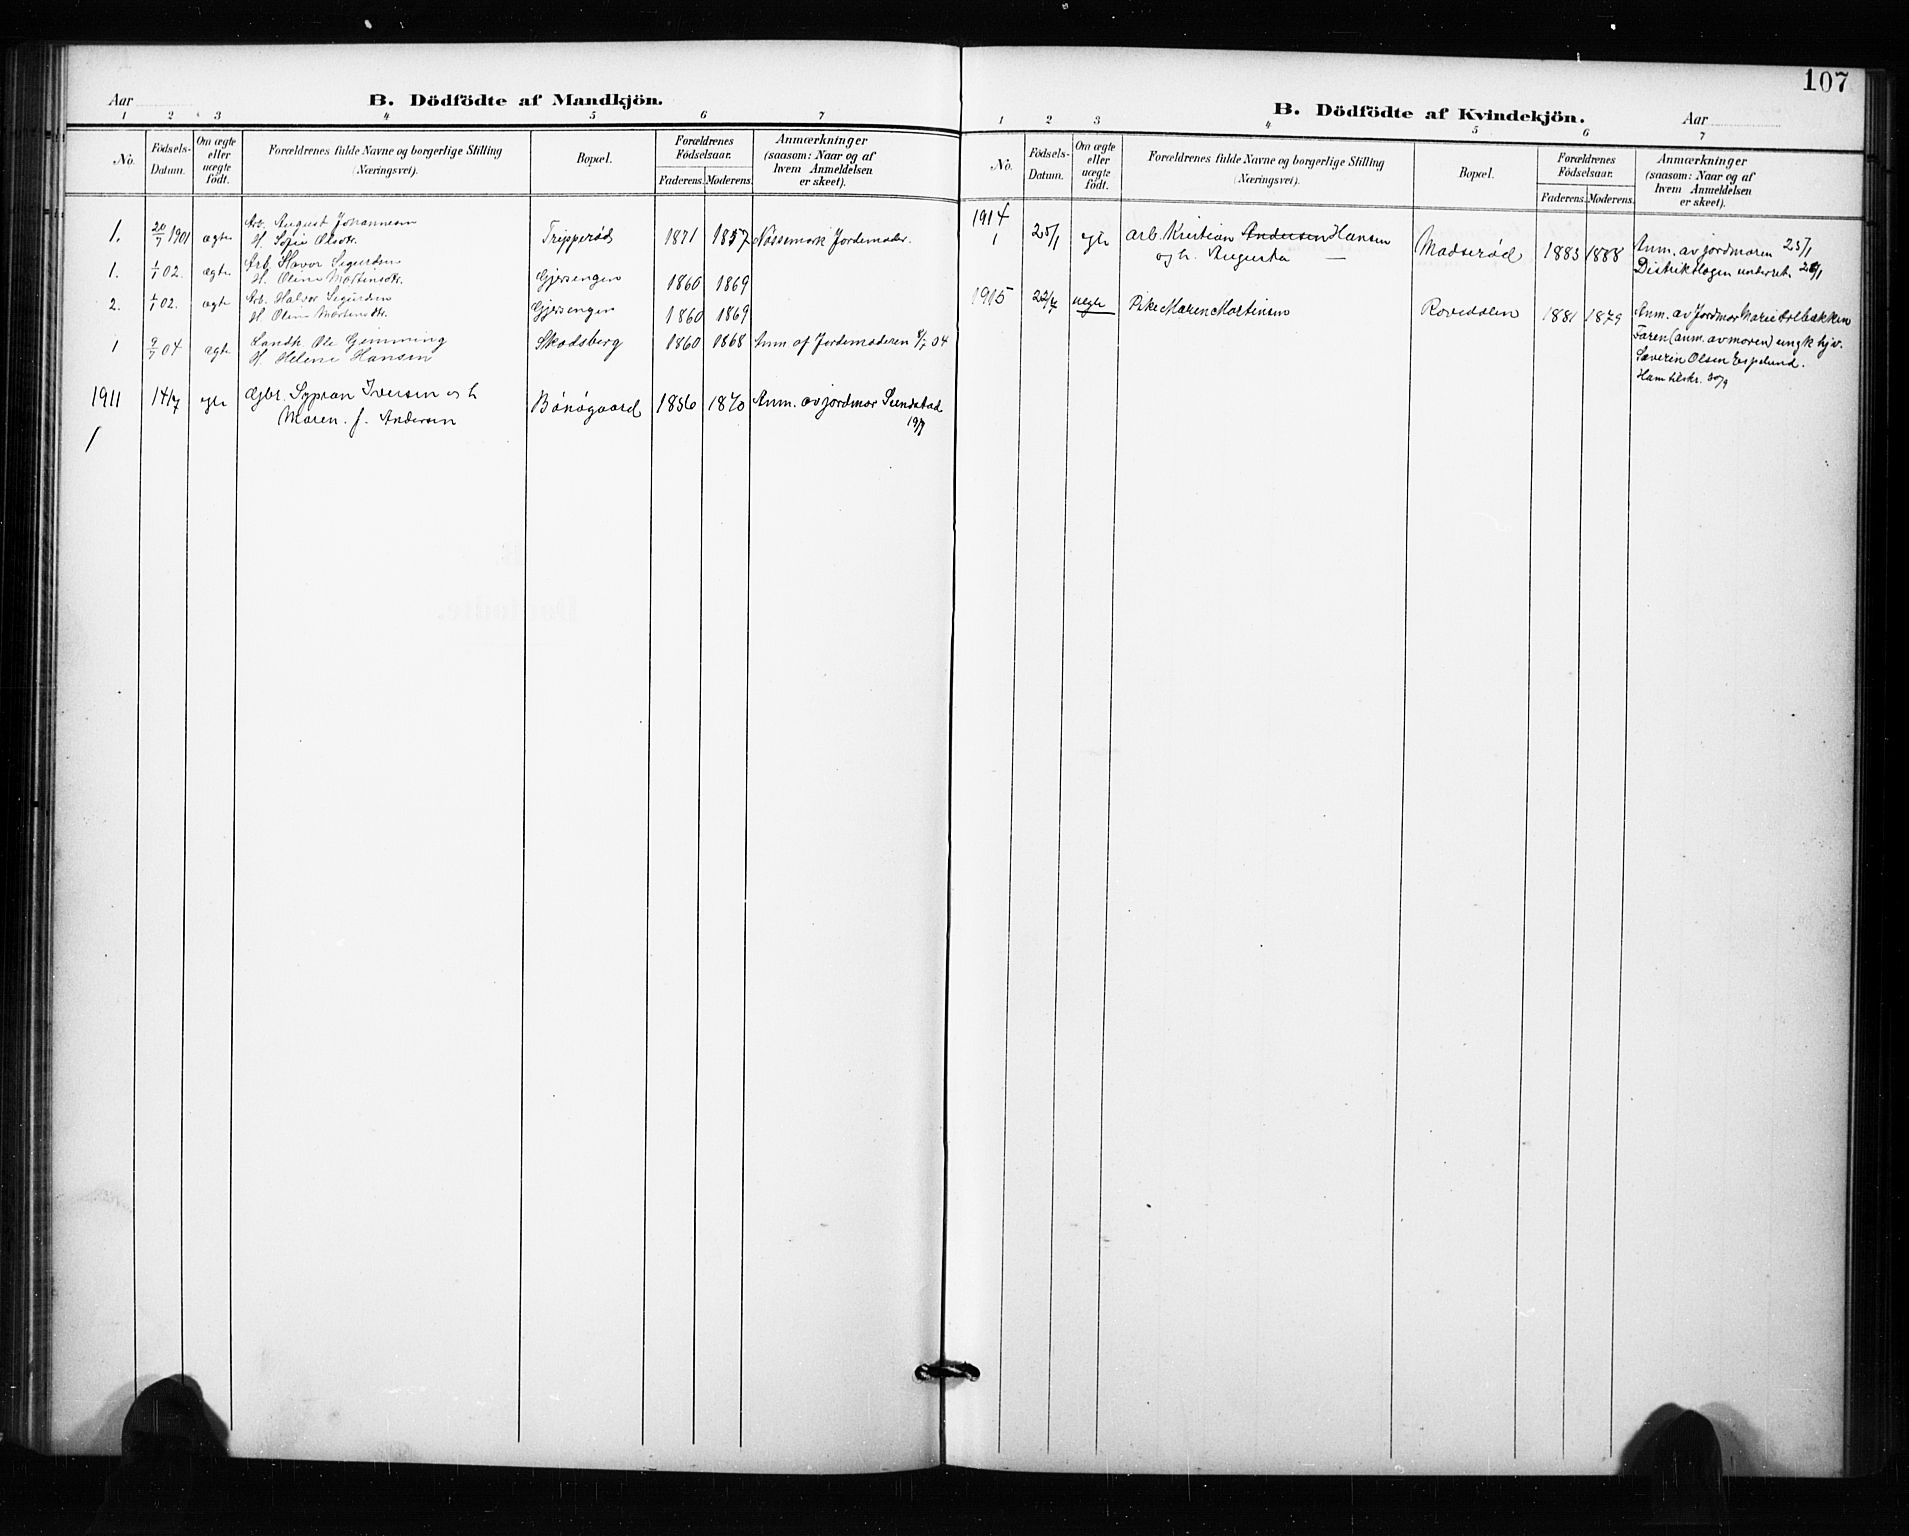 107
Aar
B. Dödfödte af Mandkjön.
1 2 3 4 5 6 7
No.
Födsels-Datum.
Om ægte eller uægte födt.
Forældrenes fulde Navne og borgerlige Stilling (Næringsvei).
Bopæl.
Forældrenes Födselsaar.
Faderens. Moderens.
Anmærkninger (saasom: Naar og af hvem Anmeldelsen er skeet).
1. 20/7 1901 ægte Arb. August Johannesen Tripperöd 1871 1857 Nössemark Jordemoder.
H. Sofie Olsdtr.
1. 1/1 02. ægte Arb. Havor Sigurdsen Gjersengen 1860 1869
H. Oline Martinsdtr.
2. 1/1 02. ægte Arb. Halvor Sigurdsen Gjersengen 1860 1869
H. Oline Martinsdtr.
1 9/7 04 ægte Landh. Ole Gimming Skodsberg 1860 1868 Anm af Jordemoderen 04
H. Helene Hansen
1911 14/7 egte Gbr. Sypran Iversen og h. Bönögaard 1856 1870 Anm. av jordmor
1 Maren f. Andersen 19/7
B. Dödfödte af Kvindekjön.
Aar
1 2 3 4 5 6 7
No.
Födsels-Datum.
Om ægte eller uægte födt.
Forældrenes fulde Navne og borgerlige Stilling (Næringsvei).
Bopæl.
Forældrenes Födselsaar.
Faderens. Moderens.
Anmærkninger (saasom: Naar og af hvem Anmeldelsen er skeet).
1914
1 25/1 egte Arb. Kristian Andersen Hansen Madseröd 1883 1888 Anm. av jordmoren 25/1
og h. Augusta — Distriktslægen underret
1915 22/7 uegte Pike Maren Martinsen Rovedalen 1881 1879 Anm. av Jordmor Marie Holbakken
Faren (anm. av moren) ungk.
Severin Olsen Espelund.
Ham tilskr. 30/9